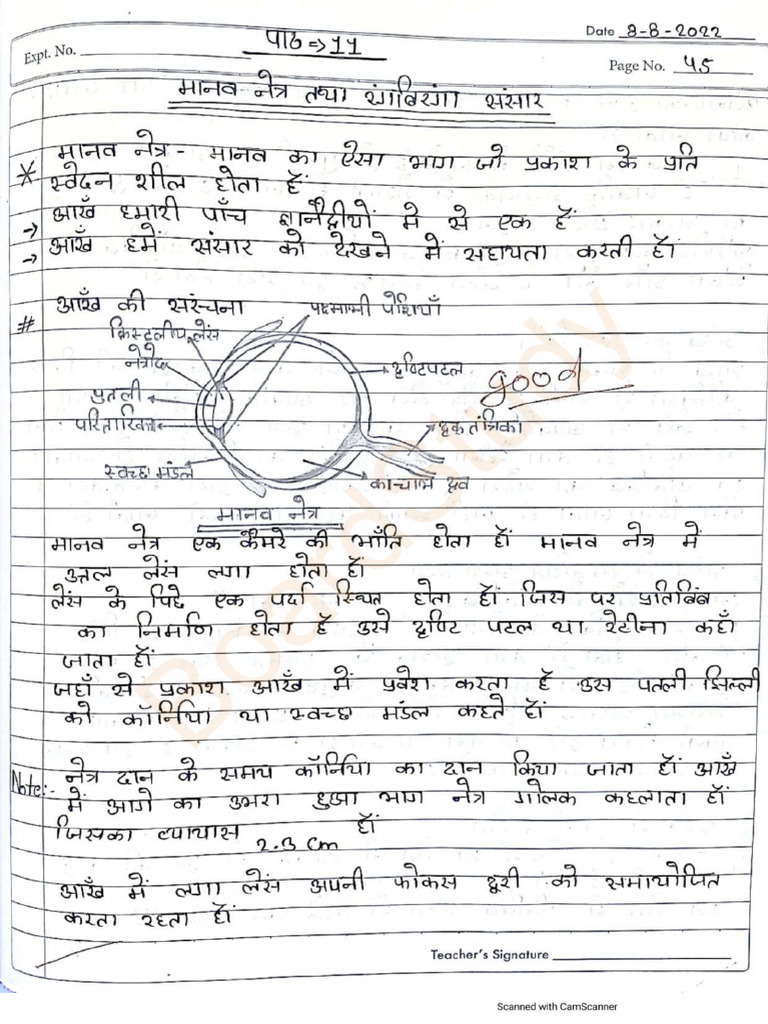 Expt. No.
पाठ => 11
Date 8-8-2022
Page No. 45
मानव नेत्र तथा रंगबिरंगा संसार
* मानव नेत्र - मानव का ऐसा भाग जो प्रकाश के प्रति
स्वेदन शील होता हैं
→ आँख हमारी पाँच ज्ञानेंद्रीयों में से एक हैं
→ आँख हमें संसार को देखने में सहायता करती हैं।
# आँख की सरंचना
पक्ष्माभी पेशियाँ
क्रिस्टलीय लेंस
नेत्रोद
दृष्टिपटल
पुतली
good
परितारिका
दृक तंत्रिका
स्वच्छ मंडल
काचाभ द्रव
मानव नेत्र
मानव नेत्र एक कैमरे की भाँति होता हैं मानव नेत्र में
उत्तल लेंस लगा होता हैं।
लेंस के पिछे एक पर्दा स्थित होता हैं। जिस पर प्रतिबिंब
का निर्माण होता हैं उसे दृष्टि पटल या रेटीना कहाँ
जाता हैं।
जहाँ से प्रकाश आँख में प्रवेश करता हैं उस पतली झिल्ली
को कॉर्निया या स्वच्छ मंडल कहते हैं।
Note:- नेत्र दान के समय कॉर्निया का दान किया जाता हैं। आँख
में आगे का उभरा हुआ भाग नेत्र गोलक कहलाता हैं।
जिसका व्यायास 2.3 cm हैं।
आँख में लगा लेंस अपनी फोकस दूरी को समायोजित
करता रहता हैं।
Teacher's Signature
Scanned with CamScanner
BoardStudy